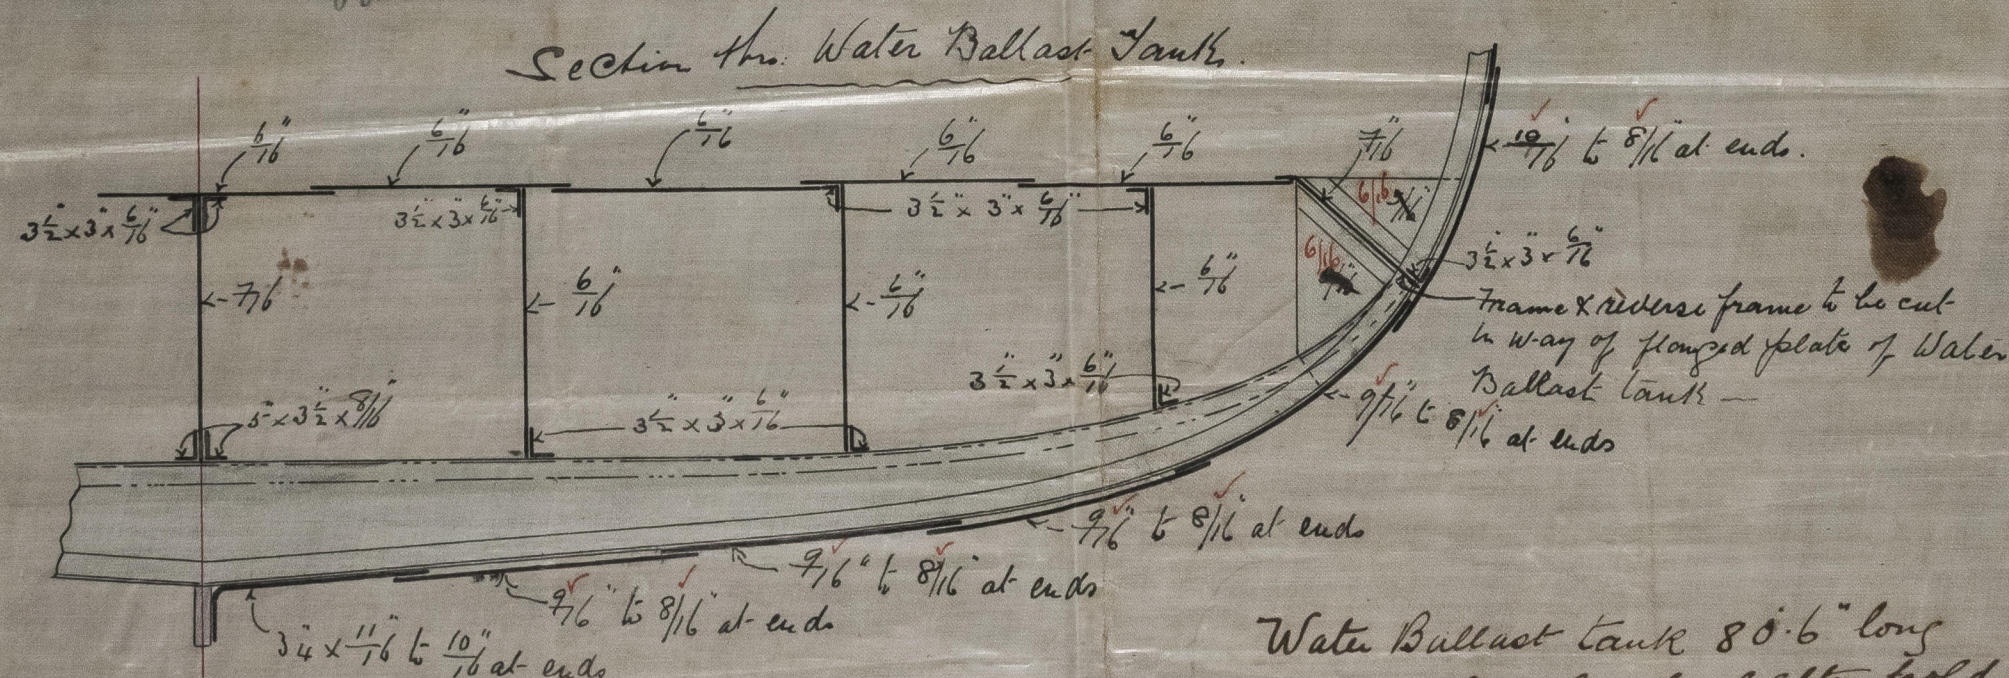 Section thro. Water Ballast Tank.
6/16" 6/16" 6/16" 6/16" 6/16" 7/16"
10/16 to 8/16 at ends.
3 1/2" x 3" x 6/16"
3 1/2" x 3" x 6/16"
3 1/2" x 3" x 6/16"
6/16
6/16
3 1/2" x 3" x 6/16"
7/16 6/16" 6/16" 6/16"
Frame & reverse frame to be cut
in way of flanged plate of Water
Ballast tank —
3 1/2" x 3" x 6/16"
9/16" to 8/16" at ends
5" x 3 1/2" x 8/16"
3 1/2" x 3" x 6/16"
9/16" to 8/16" at ends
9/16" to 8/16" at ends
9/16" to 8/16" at ends
11/16 to 10/16" at ends
Water Ballast tank 80'.6" long